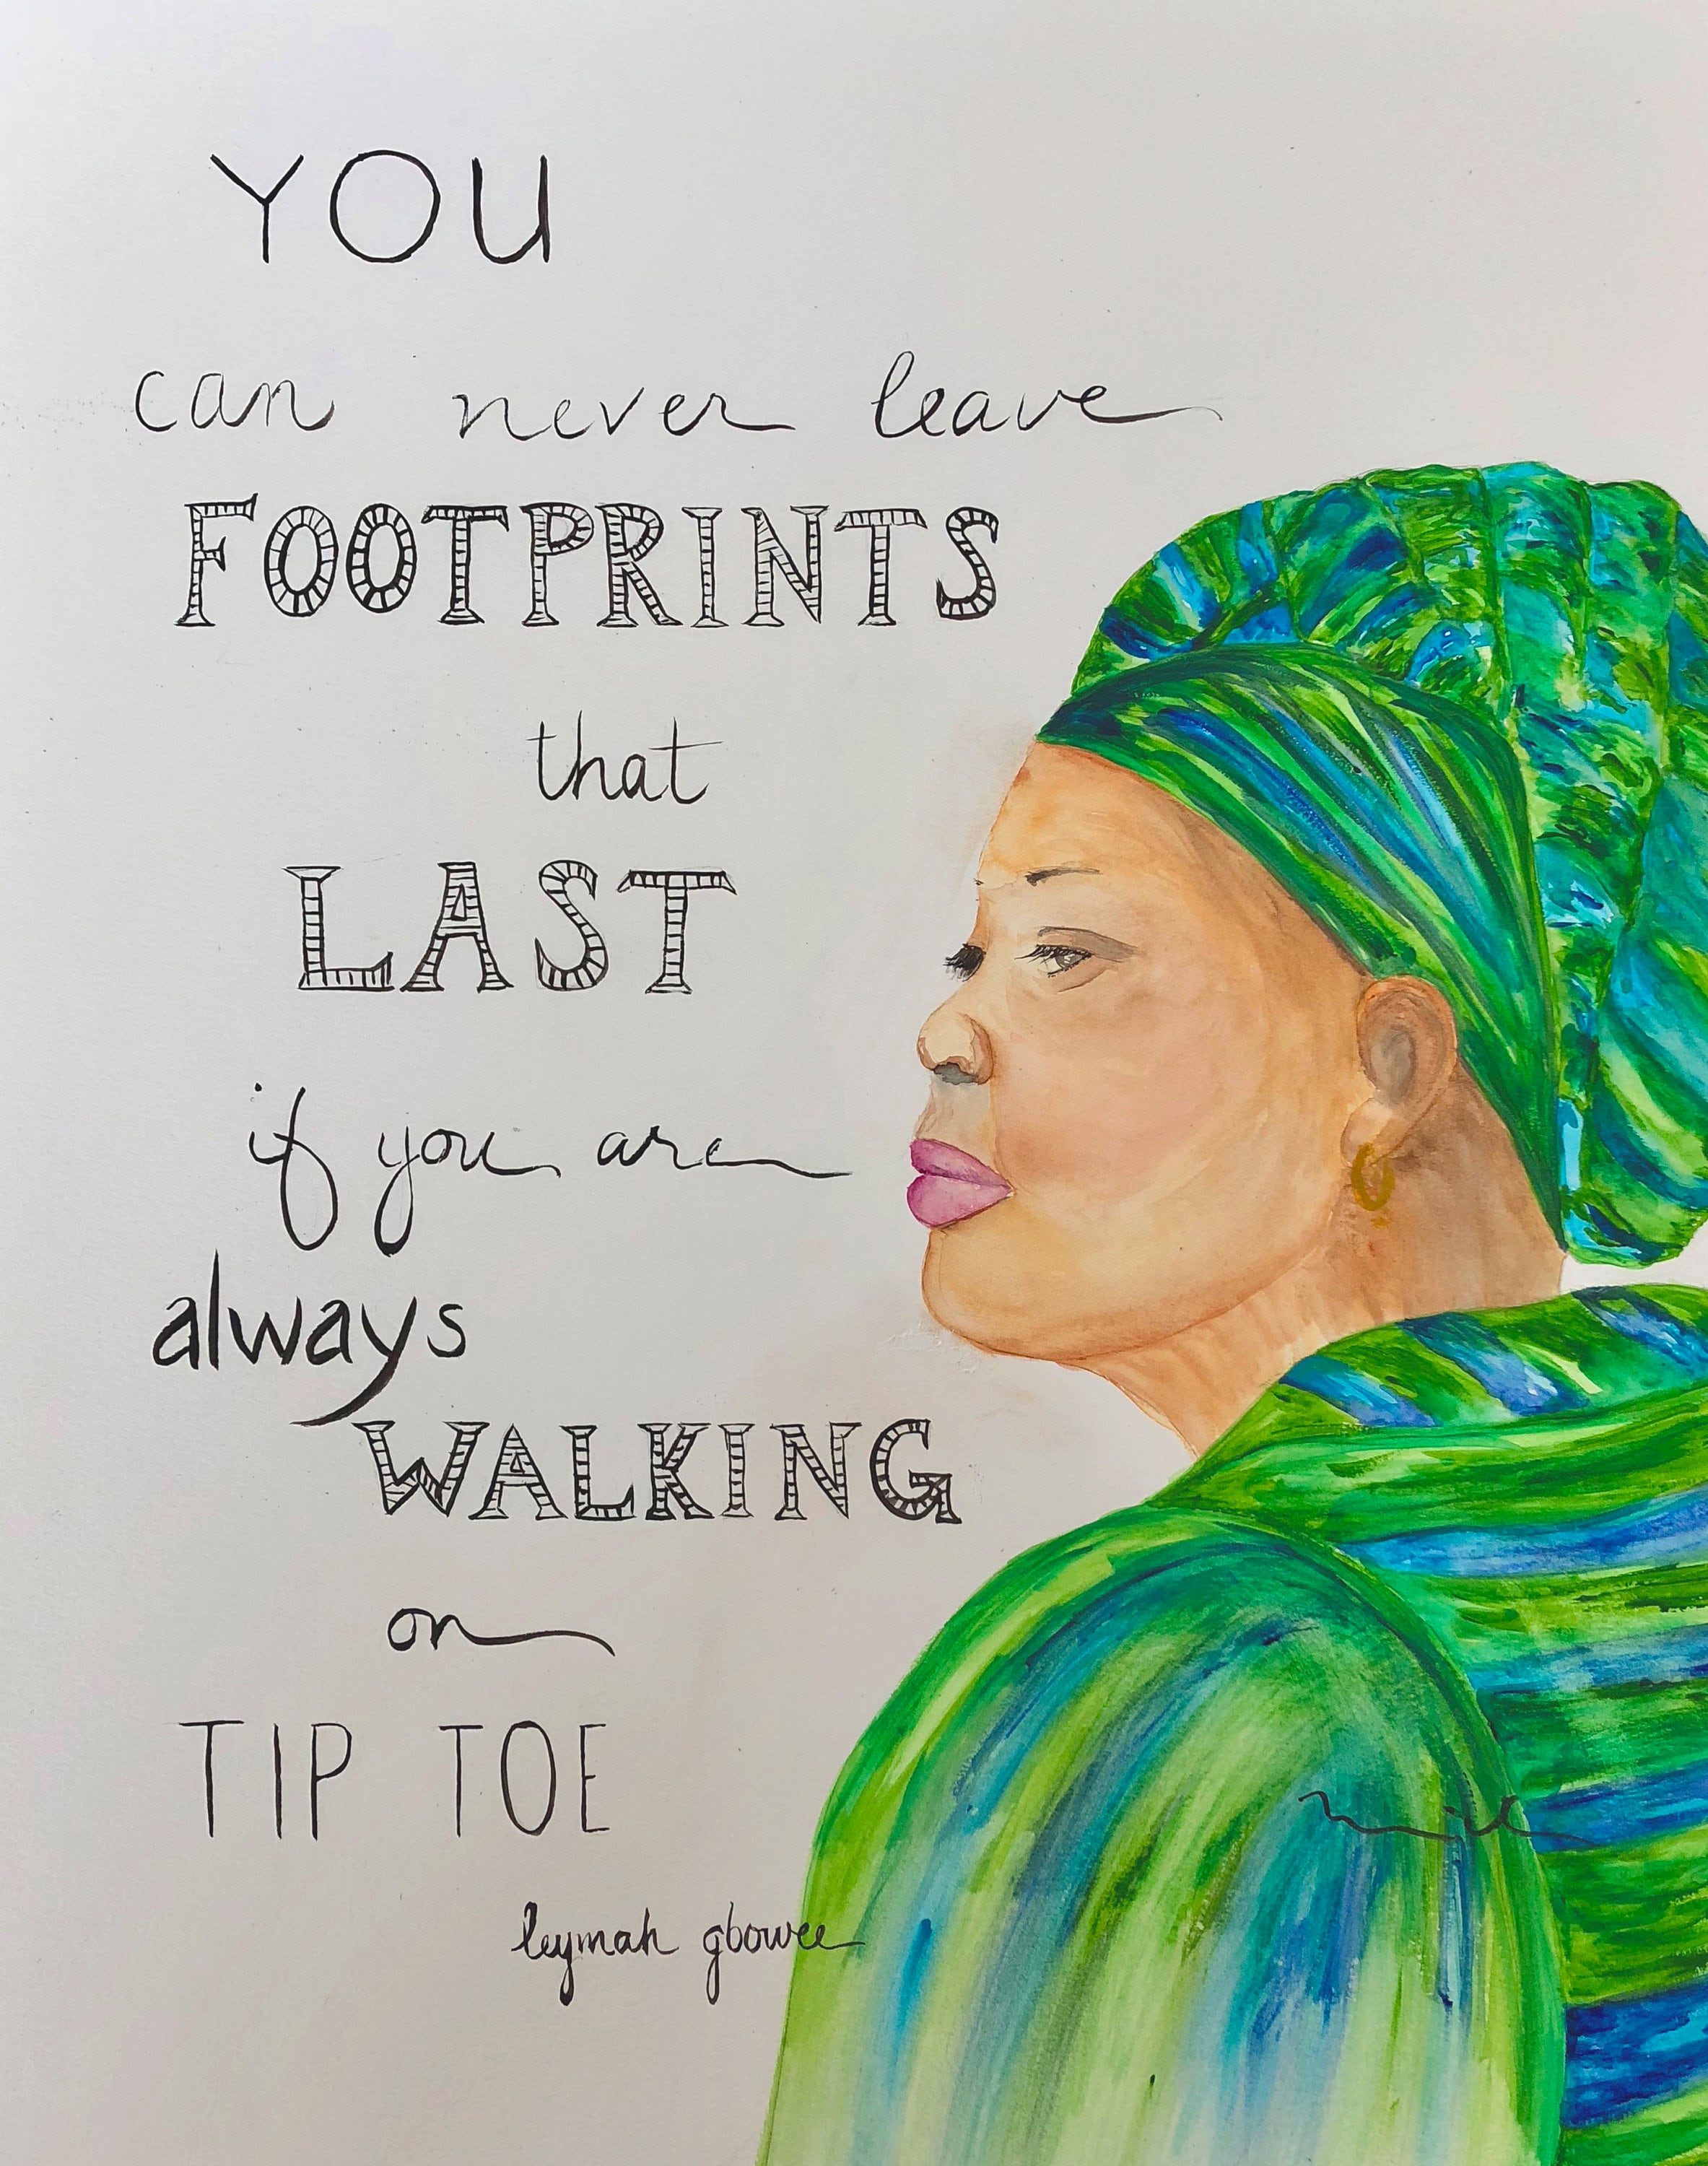 YOU
can never leave
FOOTPRINTS
that
LAST
if you are
always
WALKING
on
TIP TOE
leymah gbowee